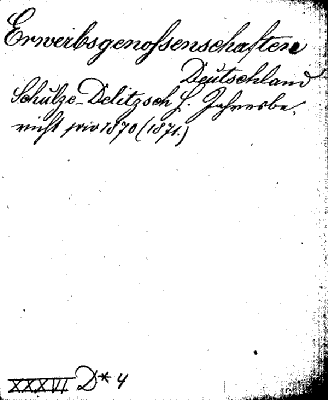 Erwerbsgenossenschaften
Deutschland
Schulze-Delitzsch H. Jahresbe-
richt für 1870 (1871.)
XXXVI D* 4